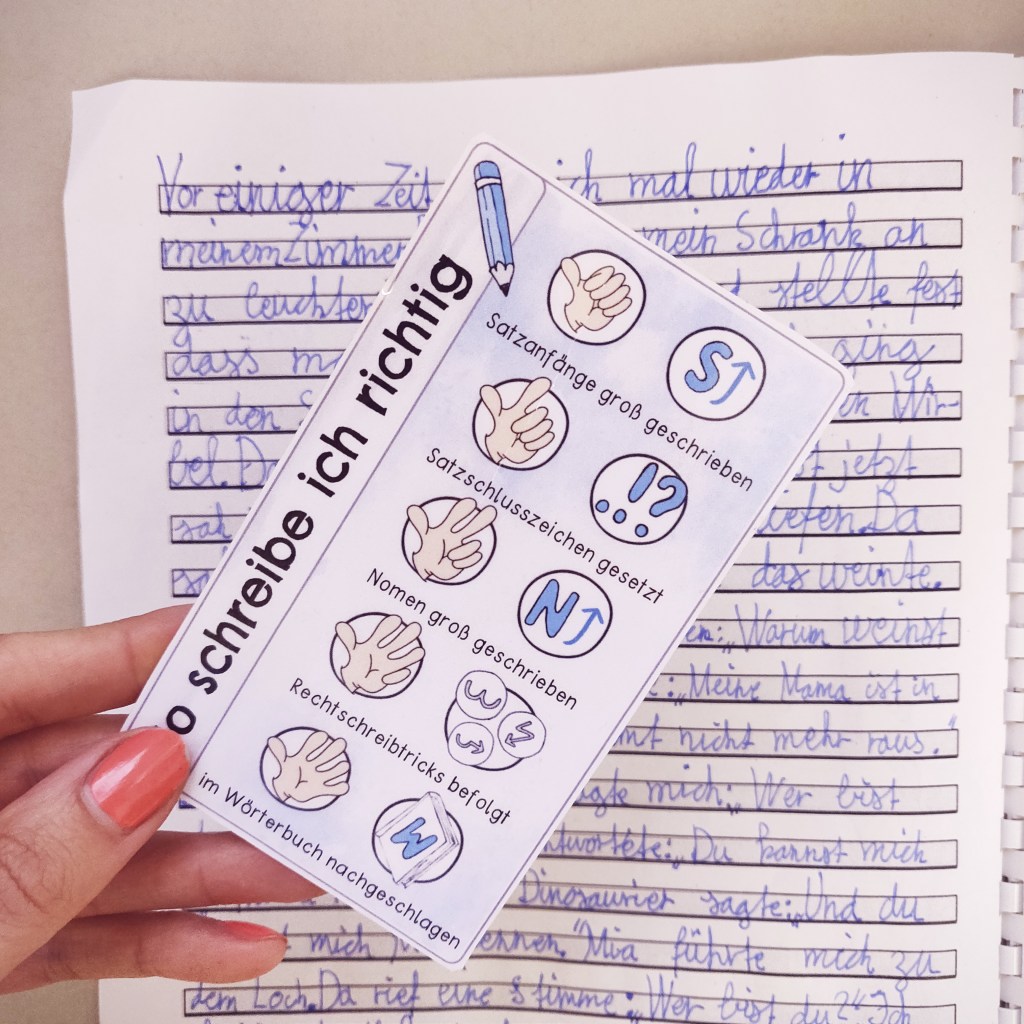 o schreibe ich richtig
Satzanfänge groß geschrieben
S
Satzschlusszeichen gesetzt
. ! ?
Nomen groß geschrieben
N
Rechtschreibtricks befolgt
im Wörterbuch nachgeschlagen
W
Vor einiger Zeit ich mal wieder in
meinem Zimmer mein Schrank an
zu leuchten stellte fest
dass ging
in den Wir-
bel. jetzt
Da
das weinte.
: „Warum weinst
: „Meine Mama ist in
nicht mehr raus."
mich: „Wer bist
antwortete: „Du kannst mich
Dinosaurier sagte: „Und du
mich nennen." Mia führte mich zu
dem Loch. Da rief eine Stimme: „Wer bist du?" „Ich